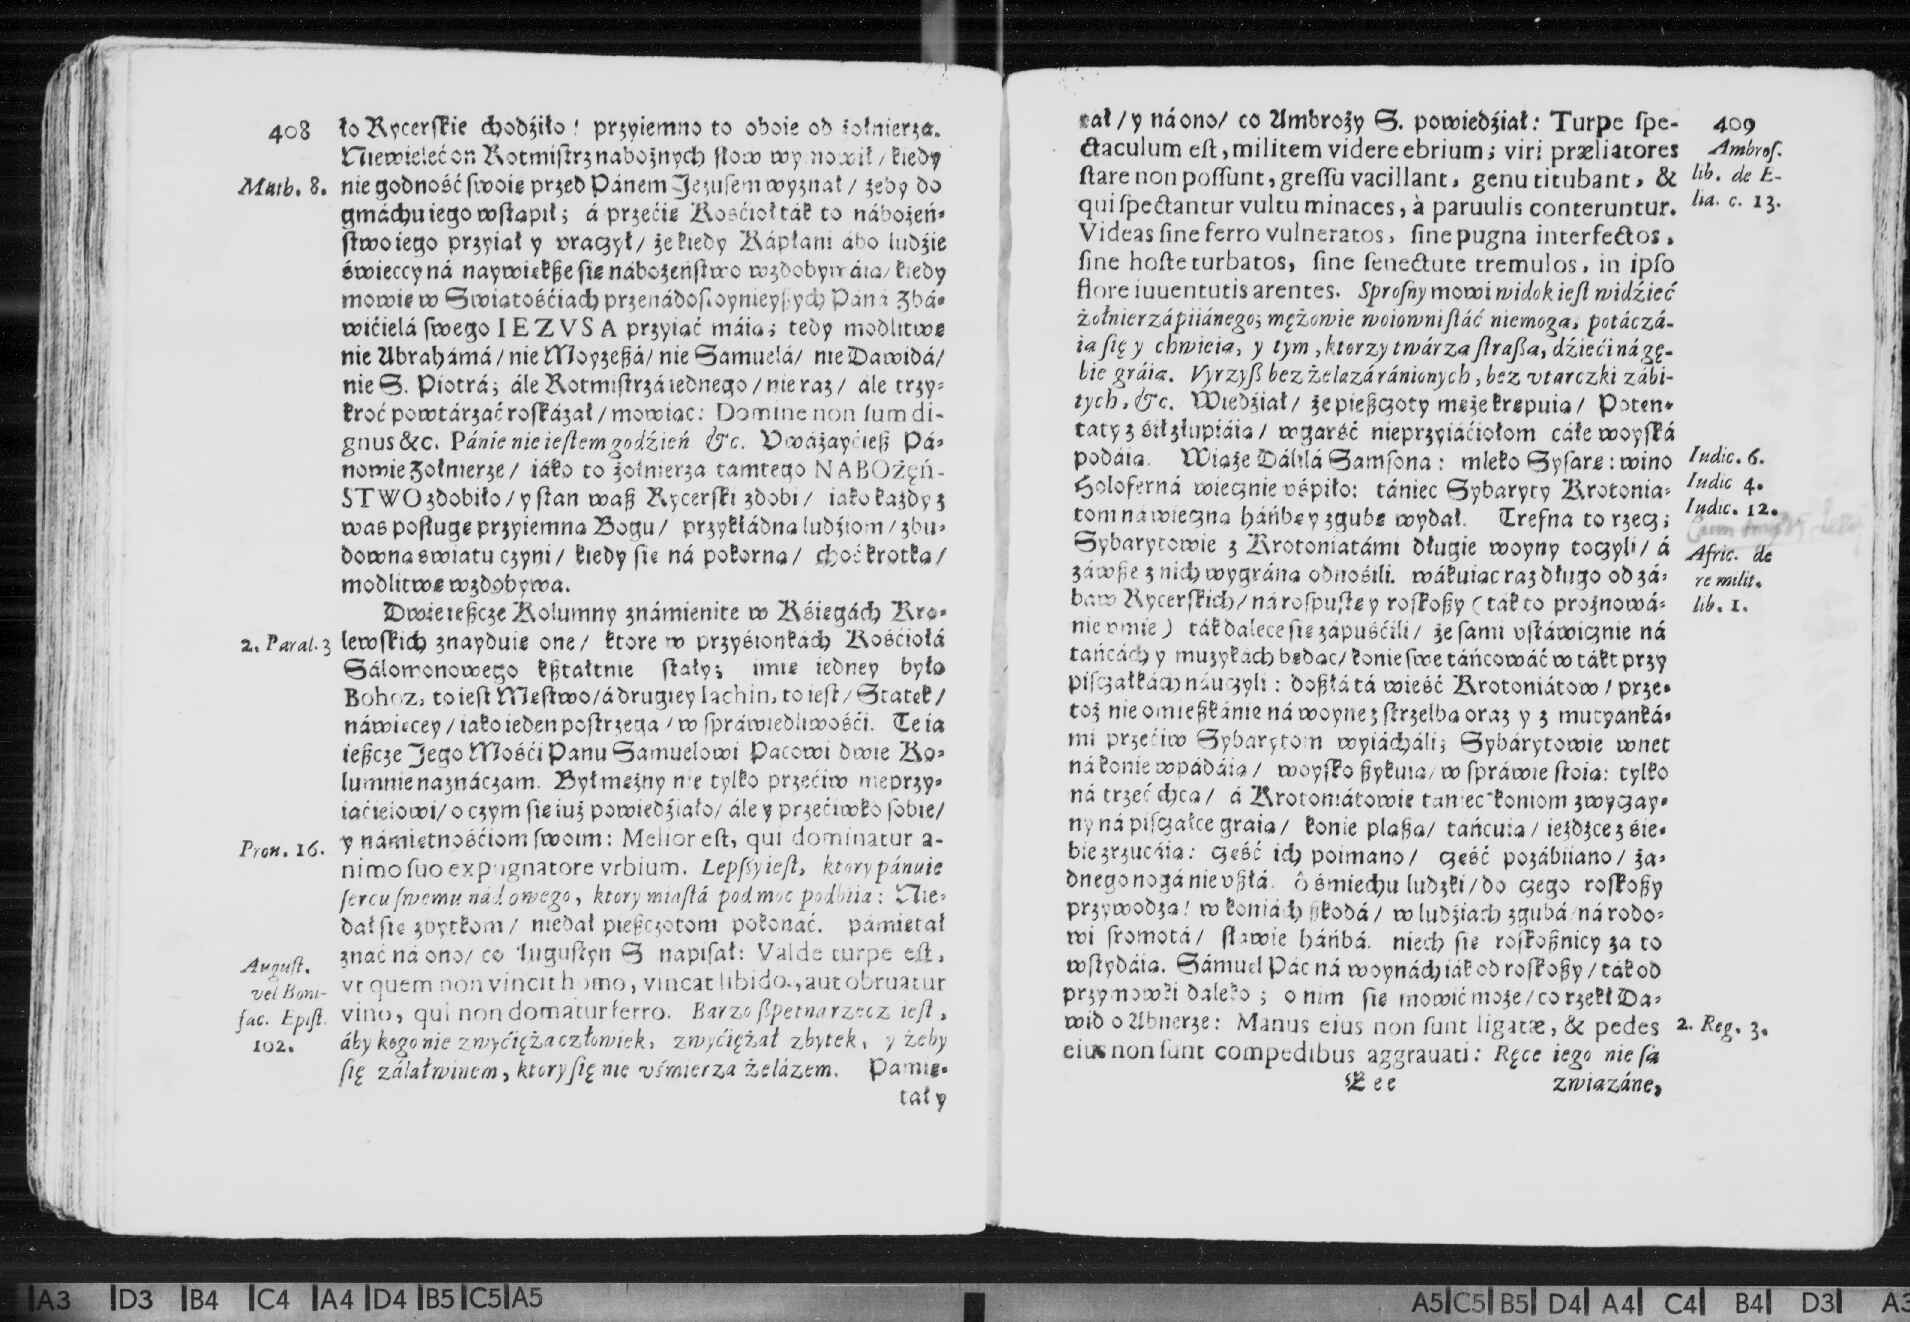 408
ło Rycerskie chodźiło! przyiemno to oboie od żołnierza.
Niewieleć on Rotmistrz nabożnych słow wymowił / kiedy
Matth. 8.
nie godność swoię przed Pánem Jezusem wyznał / żeby do
gmáchu iego wstąpił; á przećię Kośćioł ták to nábożeń-
stwo iego przyiął y vraczył / że kiedy Kápłani ábo ludźie
świeccy ná naywiększe się nábożeństwo wzdobywáią / kiedy
mowię w Swiątośćiach przenádostoynieyszych Páná Zbá-
wićielá swego IEZVSA przyiąć máią; tedy modlitwę
nie Abráhámá / nie Moyzeszá / nie Samuelá / nie Dawidá /
nie S. Piotrá; ále Rotmistrzá iednego / nie raz / ale trzy-
kroć powtárzáć roskázał / mowiąc: Domine non sum di-
gnus &c. Pánie nie iestem godźien &c. Vważayćiesz Pá-
nowie Zołnierze / iáko to żołnierzá támtego NABOŻĘŃ-
STWO zdobiło / y stan wász Rycerski zdobi / iáko każdy z
was posługę przyiemną Bogu / przykłádną ludźiom / zbu-
downą światu czyni / kiedy się ná pokorną / choć krotką /
modlitwę wzdobywa.
Dwie ieszcze Kolumny známienite w Kśięgách Kro-
2. Paral. 3
lewskich znayduię one / ktore w przyśionkách Kośćiołá
Sálomonowego kształtnie stały; imię iedney było
Bohoz, to iest Męstwo / á drugiey Iachin, to iest / Statek /
náwięcey / iáko ieden postrzega / w spráwiedliwośći. Te ia
ieszcze Jego Mośći Pánu Samuelowi Pácowi dwie Ko-
lumnie naznáczam. Był mężny nie tylko przećiw nieprzy-
iaćielowi / o czym się iuż powiedźiało / ále y przećiwko sobie /
Prou. 16.
y námiętnośćiom swoim: Melior est, qui dominatur a-
nimo suo expugnatore vrbium. Lepszy iest, ktory pánuie
sercu swemu nád owego, ktory miástá pod moc podbiia: Nie-
dał się zbytkom / niedał pieszczotom pokonáć. pámiętał
August.
vel Boni-
fac. Epist.
102.
znáć ná ono / co Augustyn S. nápisał: Valde turpe est,
vt quem non vincit homo, vincat libido, aut obruatur
vino, qui non domatur ferro. Bárzo szpetna rzecz iest,
áby kogo nie zwyćiężá człowiek, zwyćiężał zbytek, y żeby
się zálał winem, ktory się nie vśmierza żelázem. Pámię-
tał y
409
tał / y ná ono / co Ambroży S. powiedźiał: Turpe spe-
ctaculum est, militem videre ebrium; viri præliatores
stare non possunt, gressu vacillant, genu titubant, &
qui spectantur vultu minaces, à paruulis conteruntur.
Videas sine ferro vulneratos, sine pugna interfectos,
sine hoste turbatos, sine senectute tremulos, in ipso
flore iuuentutis arentes. Sprosny mowi widok iest widźieć
Ambros.
lib. de E-
lia. c. 13.
żołnierzá piiánego; mężowie woiowni stáć niemogą, potáczá-
ią się y chwieią, y tym, ktorzy twárzą straszą, dźieći ná gę-
bie gráią. Vyrzysz bez żelazá ránionych, bez vtarczki zábi-
tych, &c. Wiedźiał / że pieszczoty męże krępuią / Poten-
taty z śił złupiáią / w garść nieprzyiáćiołom cáłe woyská
podáią. Wiąże Dálilá Samsona: mleko Sysarę: wino
Holoferná wiecznie vśpiło: tániec Sybaryty Krotonia-
tom ná wieczną háńbę y zgubę wydał. Trefna to rzecz;
Iudic. 6.
Iudic 4.
Iudic. 12.
Sybarytowie z Krotoniatámi długie woyny toczyli / á
záwsze z nich wygráną odnośili. wákuiąc raz długo od zá-
baw Rycerskich / ná rospustę y roskoszy (ták to prożnowá-
nie vmie) ták dalece się zápuśćili / że sami vstáwicznie ná
Afric. de
re milit.
lib. 1.
tańcách y muzykách będąc / konie swe táńcowáć w tákt przy
pisczałkách náuczyli: doszłá tá wieść Krotoniátow / prze-
toż nie omieszkánie ná woynę z strzelbą oraz y z mutyanká-
mi przećiw Sybarytom wyiácháli; Sybárytowie wnet
ná konie wpádáią / woysko szykuią / w spráwie stoią: tylko
ná trzeć chcą / á Krotoniátowie taniec koniom zwyczay-
ny ná pisczałce graią / konie pląszą / tańcuią / ieźdźce z śie-
bie zrzucáią: część ich poimano / część pozábiiano / żá-
dnego nogá nie vszłá. ô śmiechu ludzki / do czego roskoszy
przywodzą! w koniách szkodá / w ludźiach zgubá / ná rodo-
wi sromotá / sławie háńbá. niech się roskosznicy zá to
wstydáią. Sámuel Pác ná woynách iák od roskoszy / ták od
przymowki daleko; o nim się mowić może / co rzekł Da-
wid o Abnerze: Manus eius non sunt ligatæ, & pedes
2. Reg. 3.
eius non sunt compedibus aggrauati: Ręce iego nie są
Eee
związáne,
A3 D3 B4 C4 A4 D4 B5 C5 A5
A5 C5 B5 D4 A4 C4 B4 D3 A3